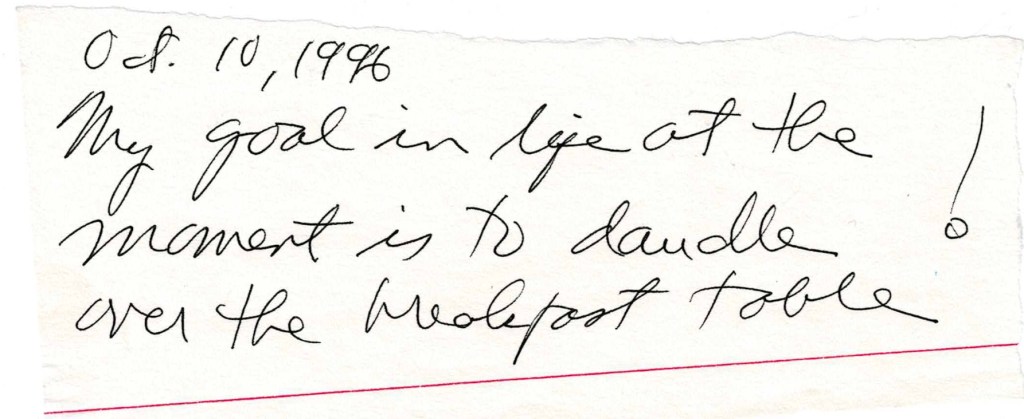 Oct. 10, 1996
My goal in life at the
moment is to dawdle
over the breakfast table!